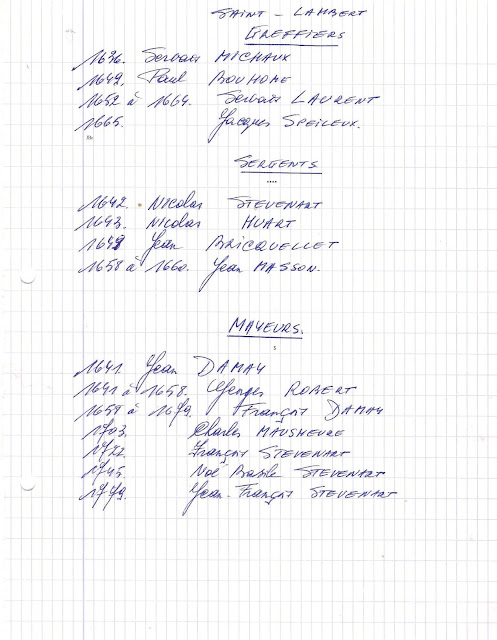 SAINT - LAMBERT
GREFFIERS
1636. Servais MICHAUX
1642. Paul BOUHOME
1652 à 1664. Servais LAURENT
1665. Jacques SPEILEUX.
SERGENTS
1642. Nicolas STEVENART
1643. Nicolas HUART
1649 Jean BRICQUELLET
1658 à 1660. Jean MASSON.
MAYEURS.
1641. Jean DAMAY
1641 à 1658. ROBERT
1659 à 1679. François DAMAY
1703. Charles MAUSHEURE
1722. François STEVENART
1745. Noë Basile STEVENART
1779. Jean-François STEVENART